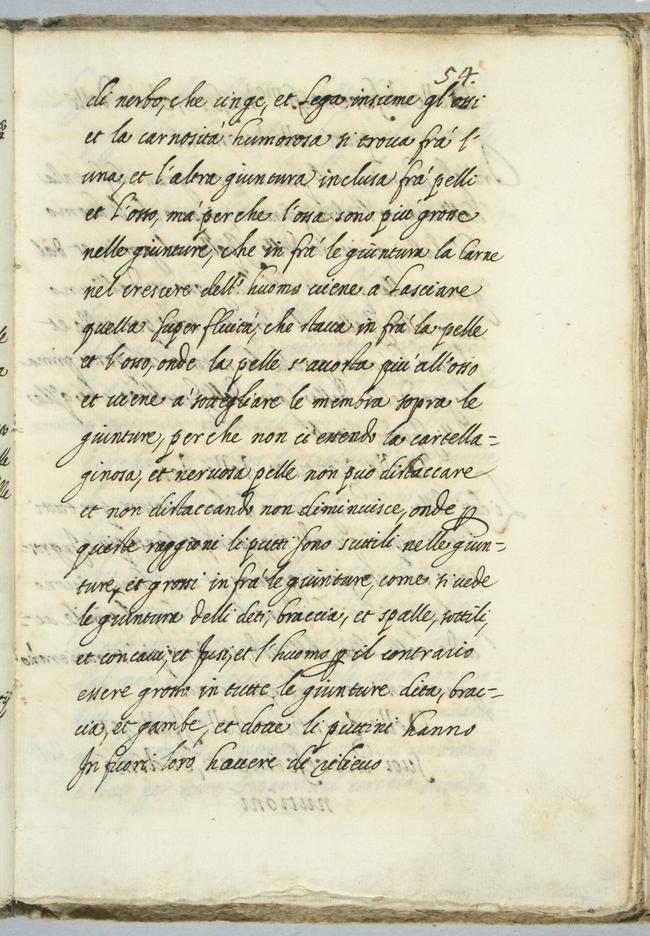 54.
di nerbo, che cinge, et Lega insieme gl'ossi
et la carnosità humorosa si troua frà l'
una, et l'altra giuntura inclusa frà pelli
et l'osso, mà perche l'ossa sono più grosse
nelle giunture, che in frà le giuntura la Carne
nel crescere dell' huomo uiene à Lasciare
quella superfluità, che staua in frà la pelle
et l'osso, onde la pelle s'auosta più all'osso
et uiene à sottegliare le membra sopra le
giunture, perche non ci essendo la cartella=
ginosa, et neruosa pelle non può distaccare
et non distaccando non diminuisce, onde p
queste raggioni li putti sono suttili nelle giun=
ture, et grossi infrà le giunture, come si uede
le giuntura delli deti, braccia, et spalle, sottili,
et concaui, et fusi, et l'huomo p il contraio
essere grosso in tutte le giunture dita, brac=
cia, et gambe, et doue li puttini hanno
In fuori loro hauere de relieuo